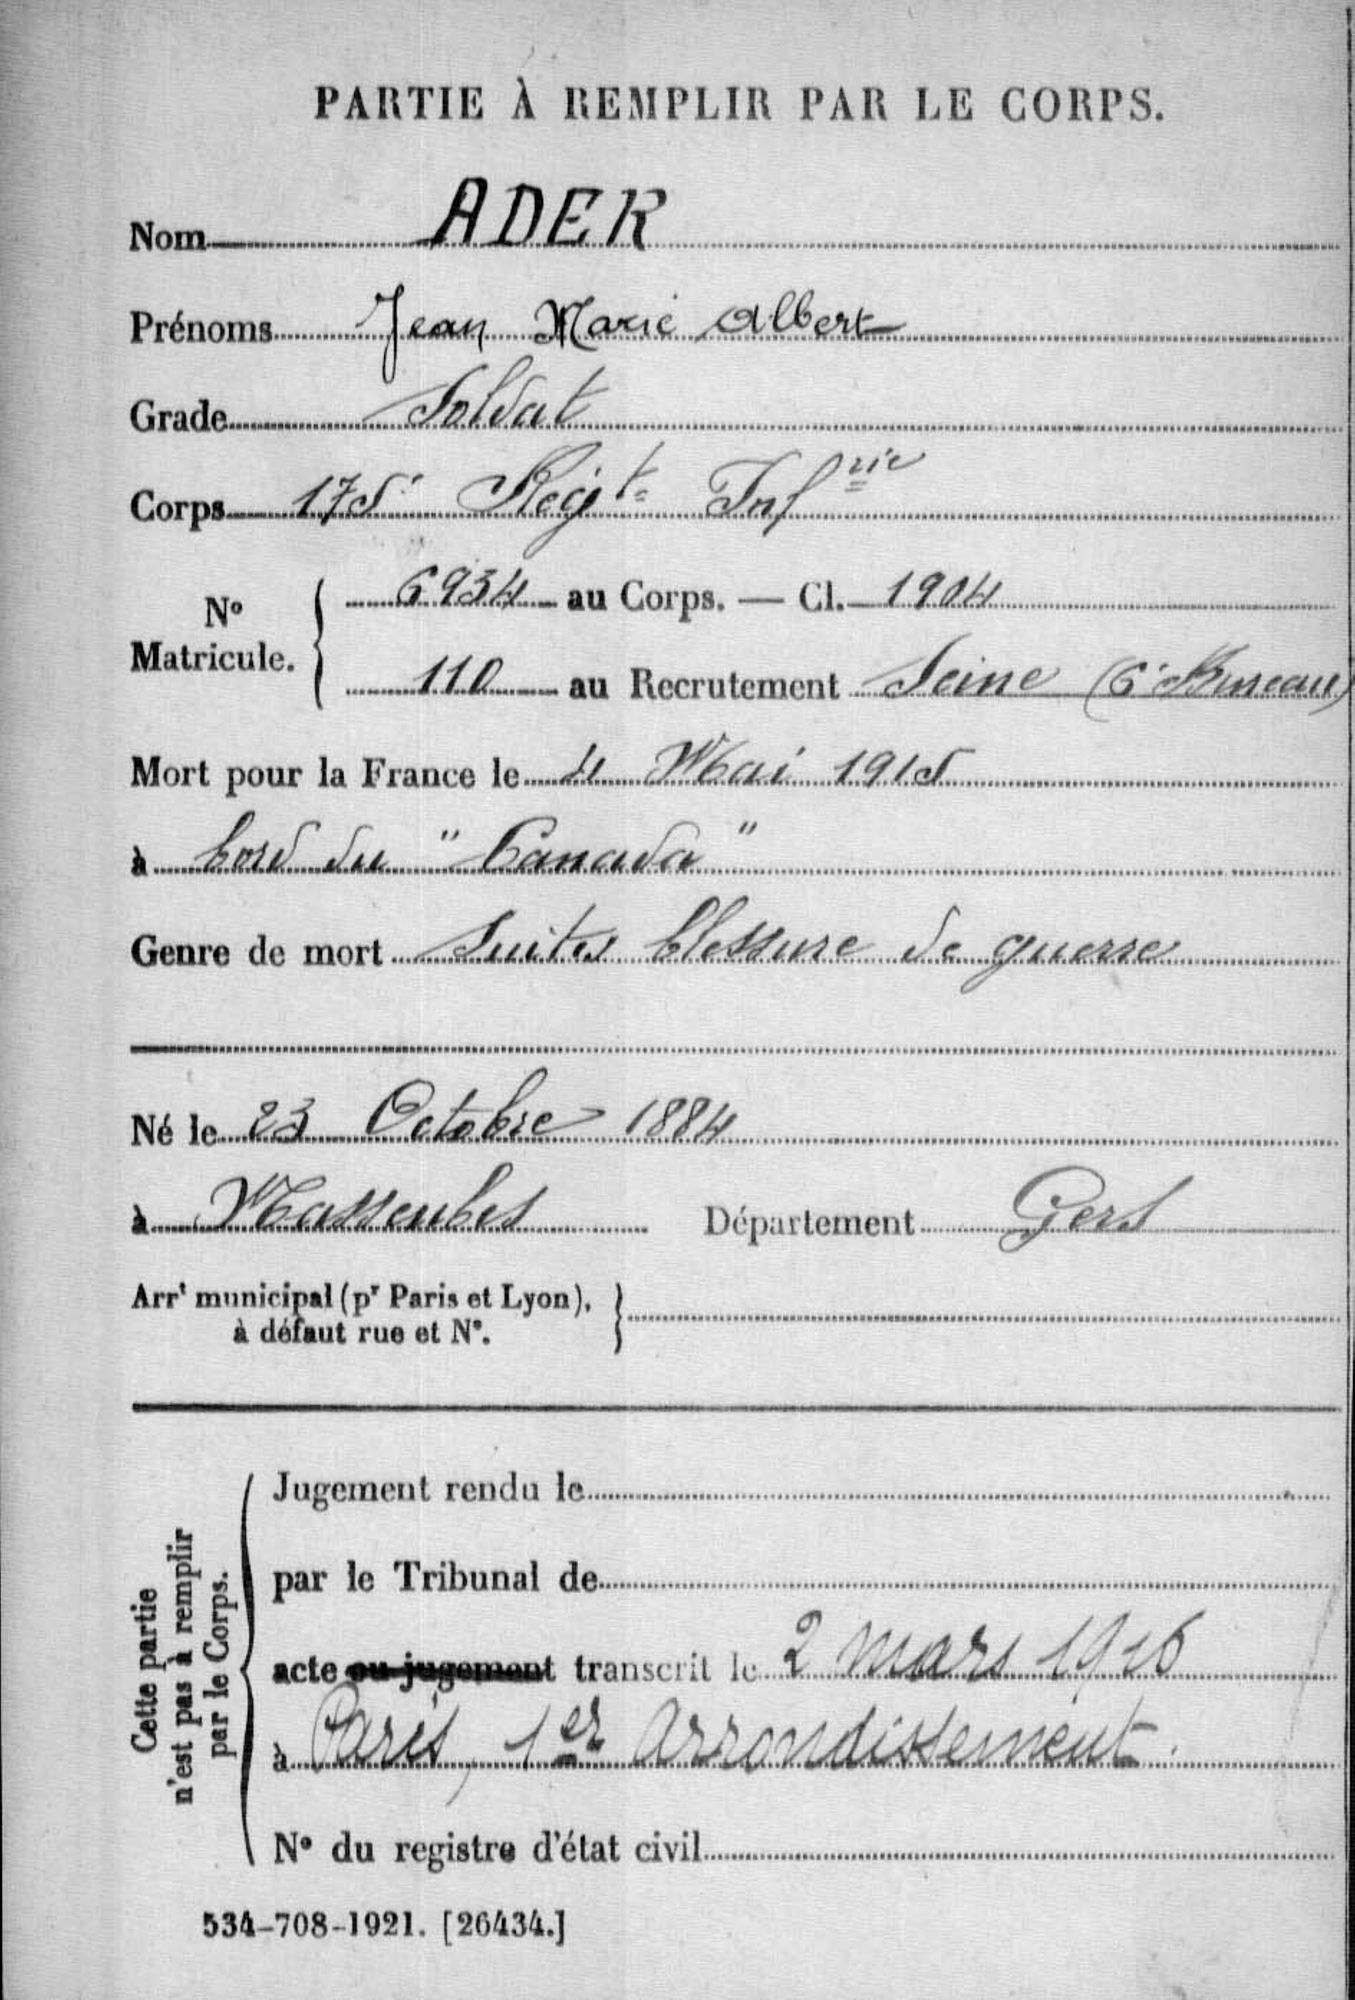 PARTIE À REMPLIR PAR LE CORPS.
Nom ADER
Prénoms Jean Marie Albert
Grade Soldat
Corps 175e Régt Infrie
No Matricule. 6934 au Corps. — Cl. 1904
110 au Recrutement Seine (6e Bureau)
Mort pour la France le 4 Mai 1915
à bord du "Canada"
Genre de mort Suites blessure de guerre
Né le 23 Octobre 1884
à Masseubes Département Gers
Arrt municipal (pr Paris et Lyon),
à défaut rue et No.
Cette partie
n'est pas à remplir
par le Corps.
Jugement rendu le
par le Tribunal de
acte ou jugement transcrit le 2 mars 1916
à Paris, 1er Arrondissement.
No du registre d'état civil
534-708-1921. [26434.]